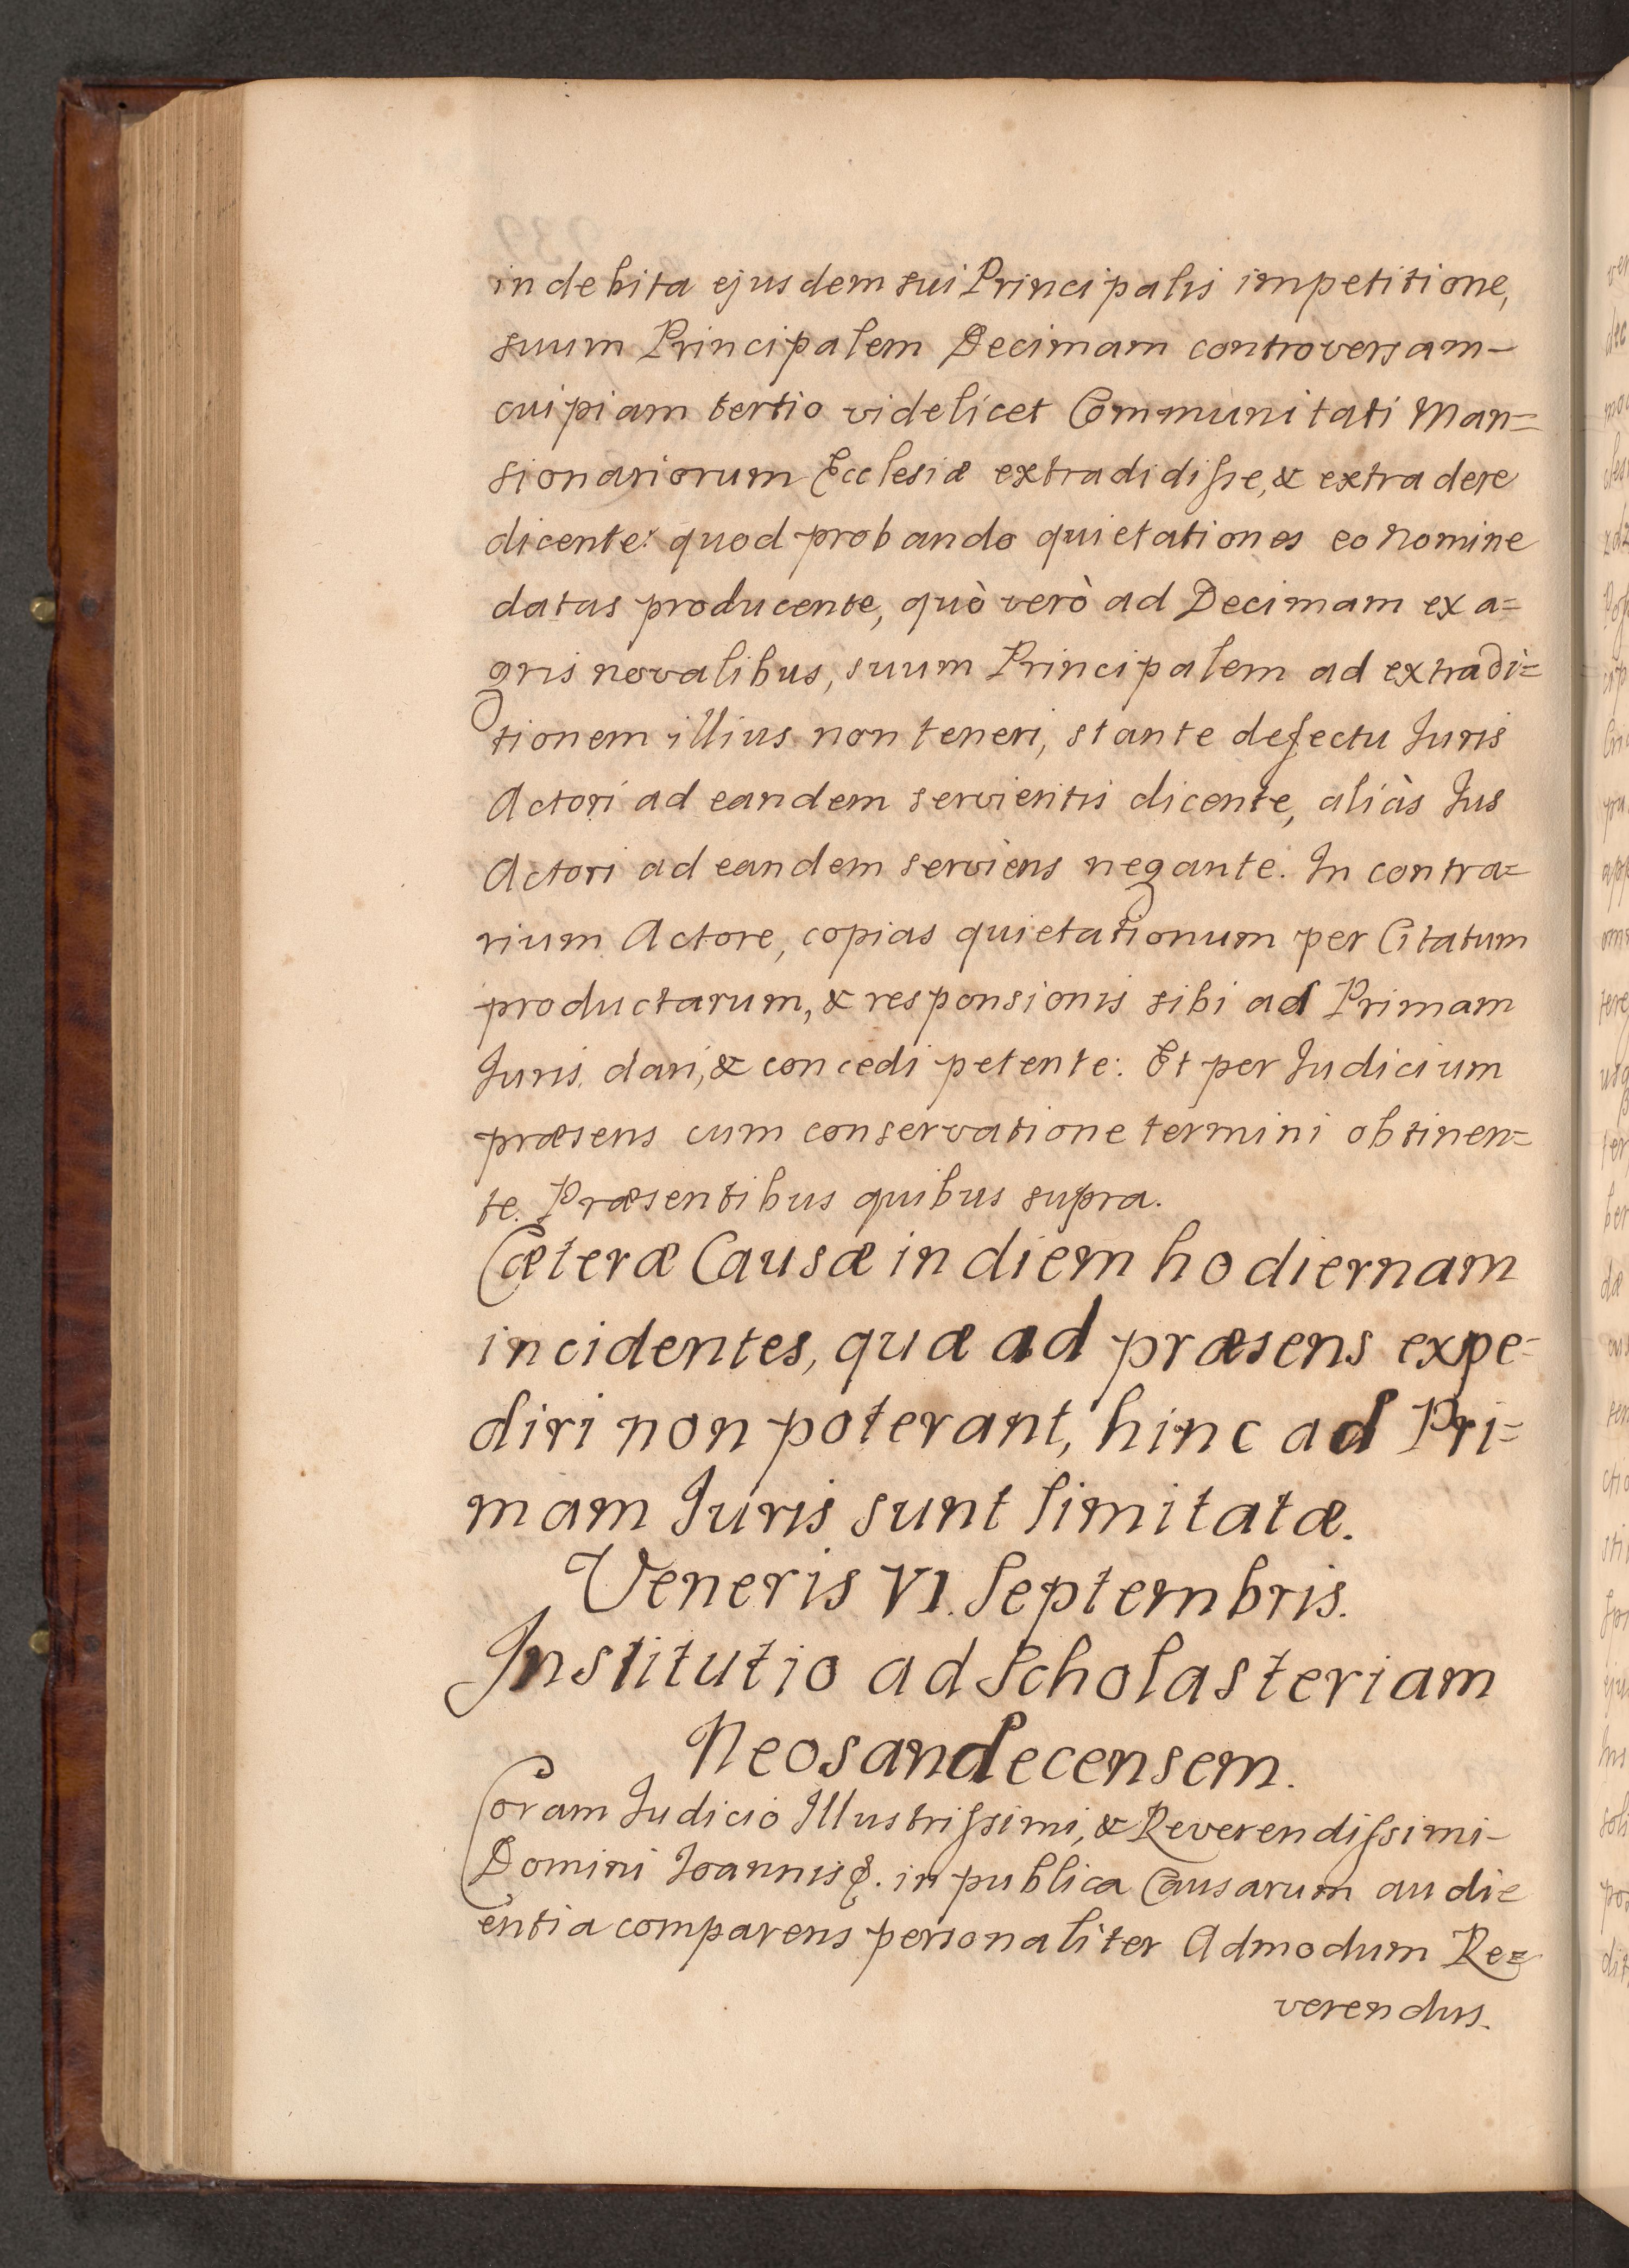 indebita ejusdem sui Principalis impetitione,
suum Principalem Decimam controversam-
cuipiam tertio videlicet Communitati Man=
sionariorum Ecclesiæ extradidisse, & extradere
dicente: quod probando quietationes eo nomine
datas producente, quò verò ad Decimam ex a=
gris novalibus, suum Principalem ad extradi=
tionem illius non teneri, stante defectu Juris
Actori ad eandem servientis dicente, aliàs Jus
Actori ad eandem serviens negante. In contra=
rium Actore, copias quietationum per Citatum
productarum, & responsionis sibi ad Primam
Juris dari, & concedi petente: Et per Judicium
præsens cum conservatione termini obtinen=
te. Præsentibus quibus supra.
Cæteræ Causæ in diem hodiernam
incidentes, quæ ad præsens expe=
diri non poterant, hinc ad Pri=
mam Juris sunt limitatæ.
Veneris VI. Septembris.
Institutio ad Scholasteriam
Neosandecensem.
Coram Judicio Illustrissimi, & Reverendissimi-
Domini Joannis &. in publica Causarum audi=
entia comparens personaliter Admodum Re=
verendus.